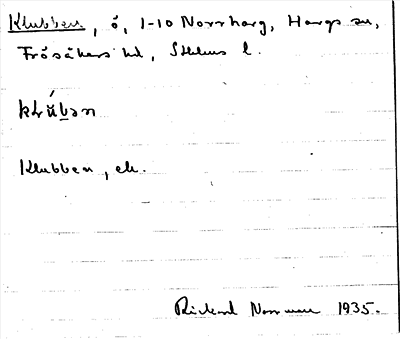 Klubben, ö, 1-10 Norrharg, Hargs sn,
Frösåkers hd, Sthlms l.
klúbən
Klubben, ek.
Rickard Norrman 1935.